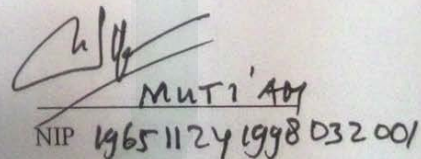 MUTI'AH
NIP 19651124 1998 032 001